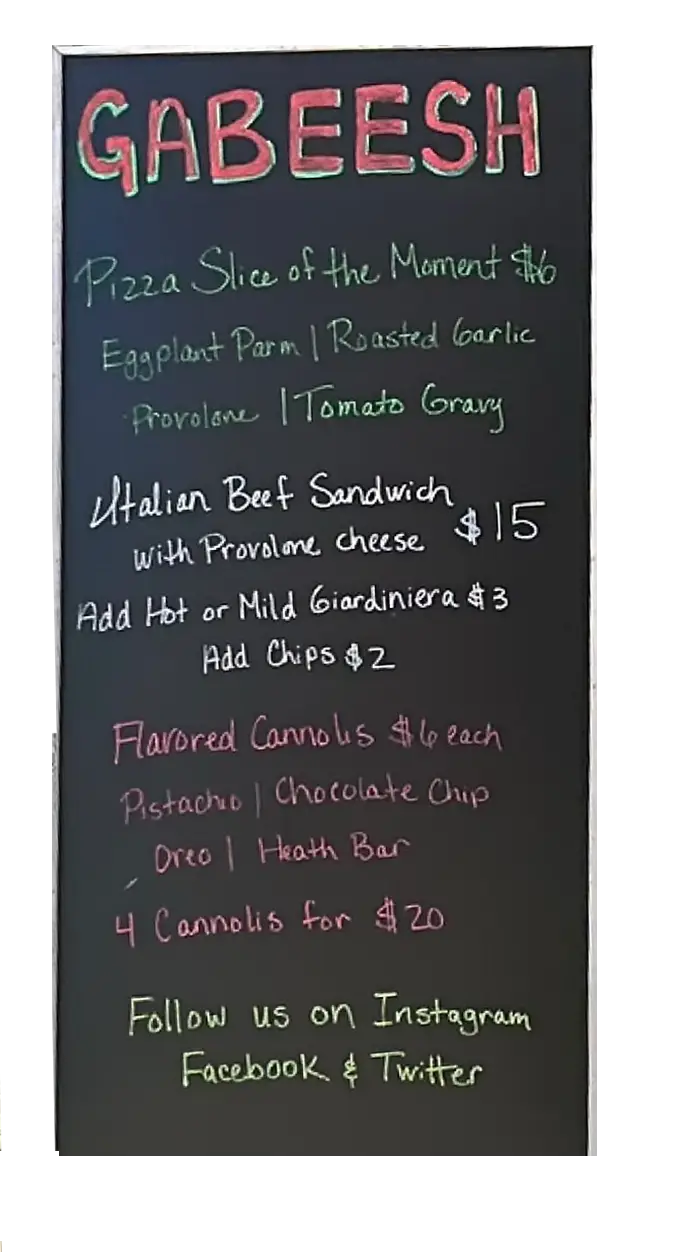 GABEESH
Pizza Slice of the Moment $6
Eggplant Parm | Roasted Garlic
Provolone | Tomato Gravy
Italian Beef Sandwich
with Provolone cheese $15
Add Hot or Mild Giardiniera $3
Add Chips $2
Flavored Cannolis $6 each
Pistachio | Chocolate Chip
Oreo | Heath Bar
4 Cannolis for $20
Follow us on Instagram
Facebook & Twitter